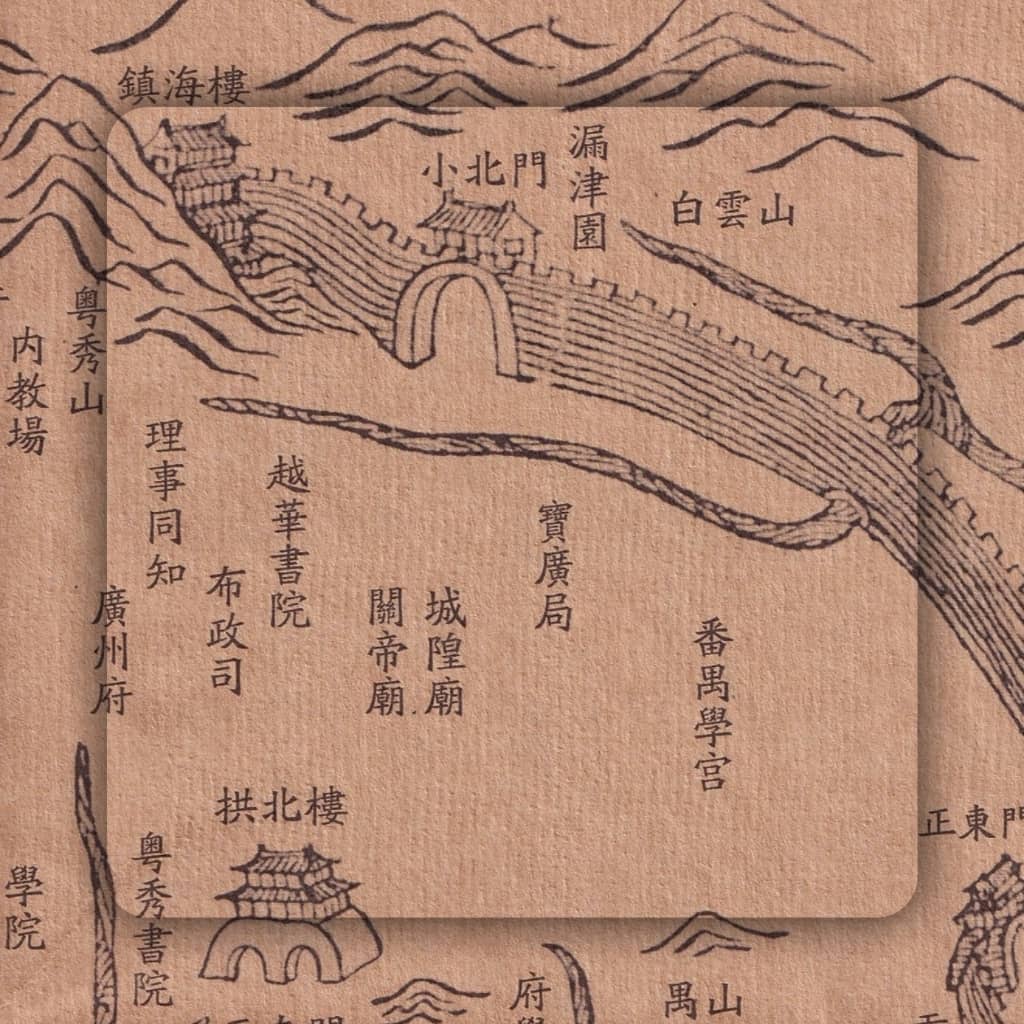 鎮海樓
小北門
漏津園
白雲山
粤秀山
内教場
理事同知
越華書院
布政司
廣州府
關帝廟
城隍廟
寶廣局
番禺學宮
拱北樓
粤秀書院
學院
正東門
府學
禺山